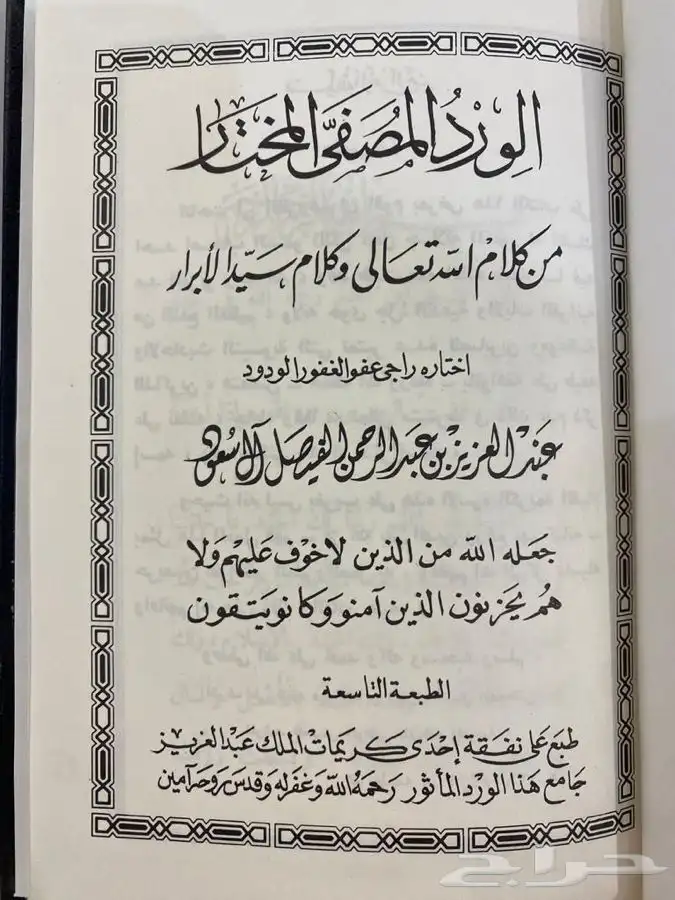 الوِرْدُ المُصَفَّى المختار
من كلام الله تعالى وكلام سيّد الأبرار
اختاره راجي عفو الغفور الودود
عبد العزيز بن عبد الرحمن الفيصل آل سعود
جعله الله من الذين لا خوف عليهم وَلا
هم يحزنون الذين آمنو وَكانو يتقون
الطبعة التاسعة
طبع على نفقة إحدى كريمات الملك عبد العزيز
جامع هذا الورد المأثور رحمه الله وغفر له وقدس روحه آمين
حراج